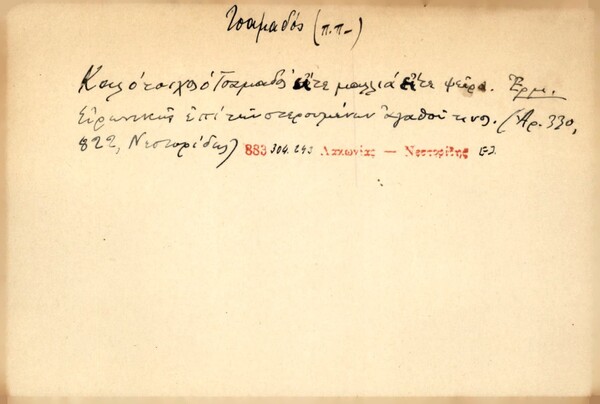 Τσαμαδός (π.π-)
ὁ Τσαμαδὸς εἴτε μαλλιά εἴτε ψεῖρα. Ἑρμ.
Εἰρωνικῶς ἐπὶ τῶν στερουμένων ἀγαθοῦ τινος. (Ἀρ. 330,
822, Νεστορίδης) 883 304.293 Λακωνίας — Νεστορίδης